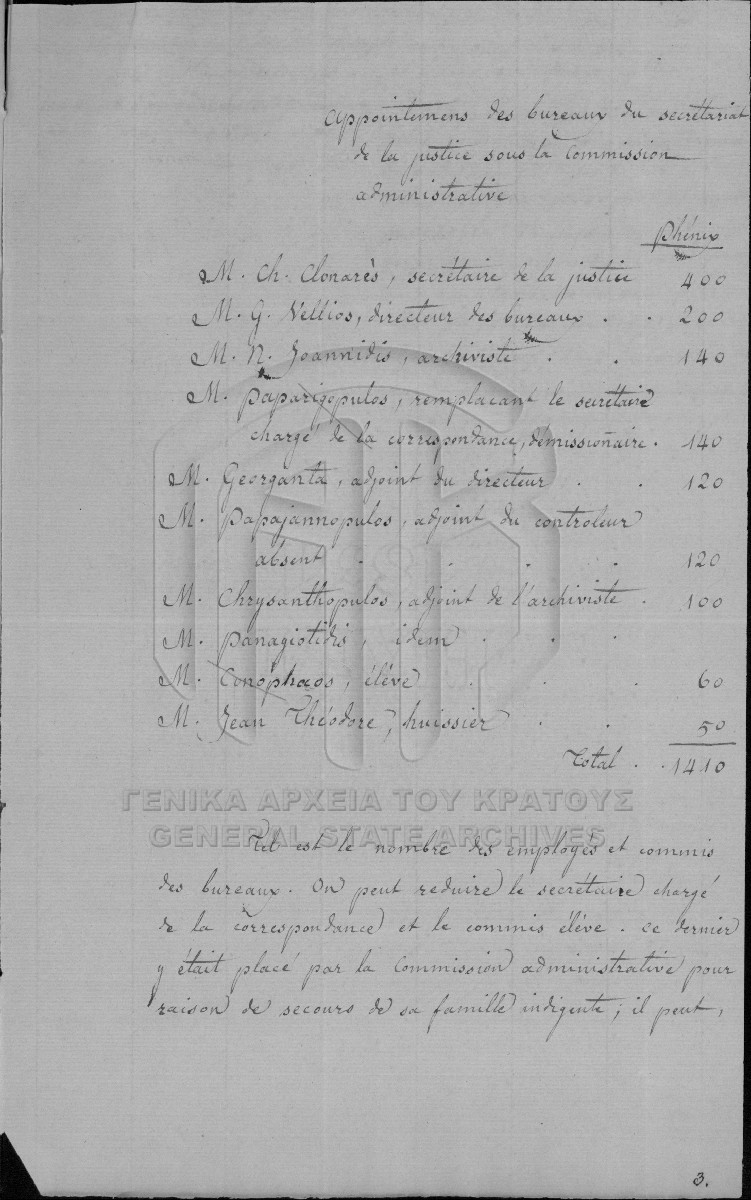 Appointemens des bureaux du secrétariat
de la justice sous la Commission
administrative
Phénix
M. Ch. Clonarès, secrétaire de la justice 400
M. G. Vellios, directeur des bureaux . . 200
M. N. Joannidis, archiviste . . 140
M. Paparigopulos, remplaçant le secrétaire
chargé de la correspondance, démissionaire. 140
M. Georganta, adjoint du directeur . . 120
M. Papajannopulos, adjoint du controleur
absent . . . . 120
M. Chrysanthopulos, adjoint de l'archiviste . 100
M. Panagiotidis, idem . . .
M. Conophaos, élève . . . 60
M. Jean Théodore, huissier . . 50
Total . . 1410
ΓΕΝΙΚΑ ΑΡΧΕΙΑ ΤΟΥ ΚΡΑΤΟΥΣ
GENERAL STATE ARCHIVES
Tel est le nombre des employés et commis
des bureaux. On peut reduire le secrétaire chargé
de la correspondance et le commis élève. Ce dernier
y était placé par la Commission administrative pour
raison de secours de sa famille indigente; il peut,
3.